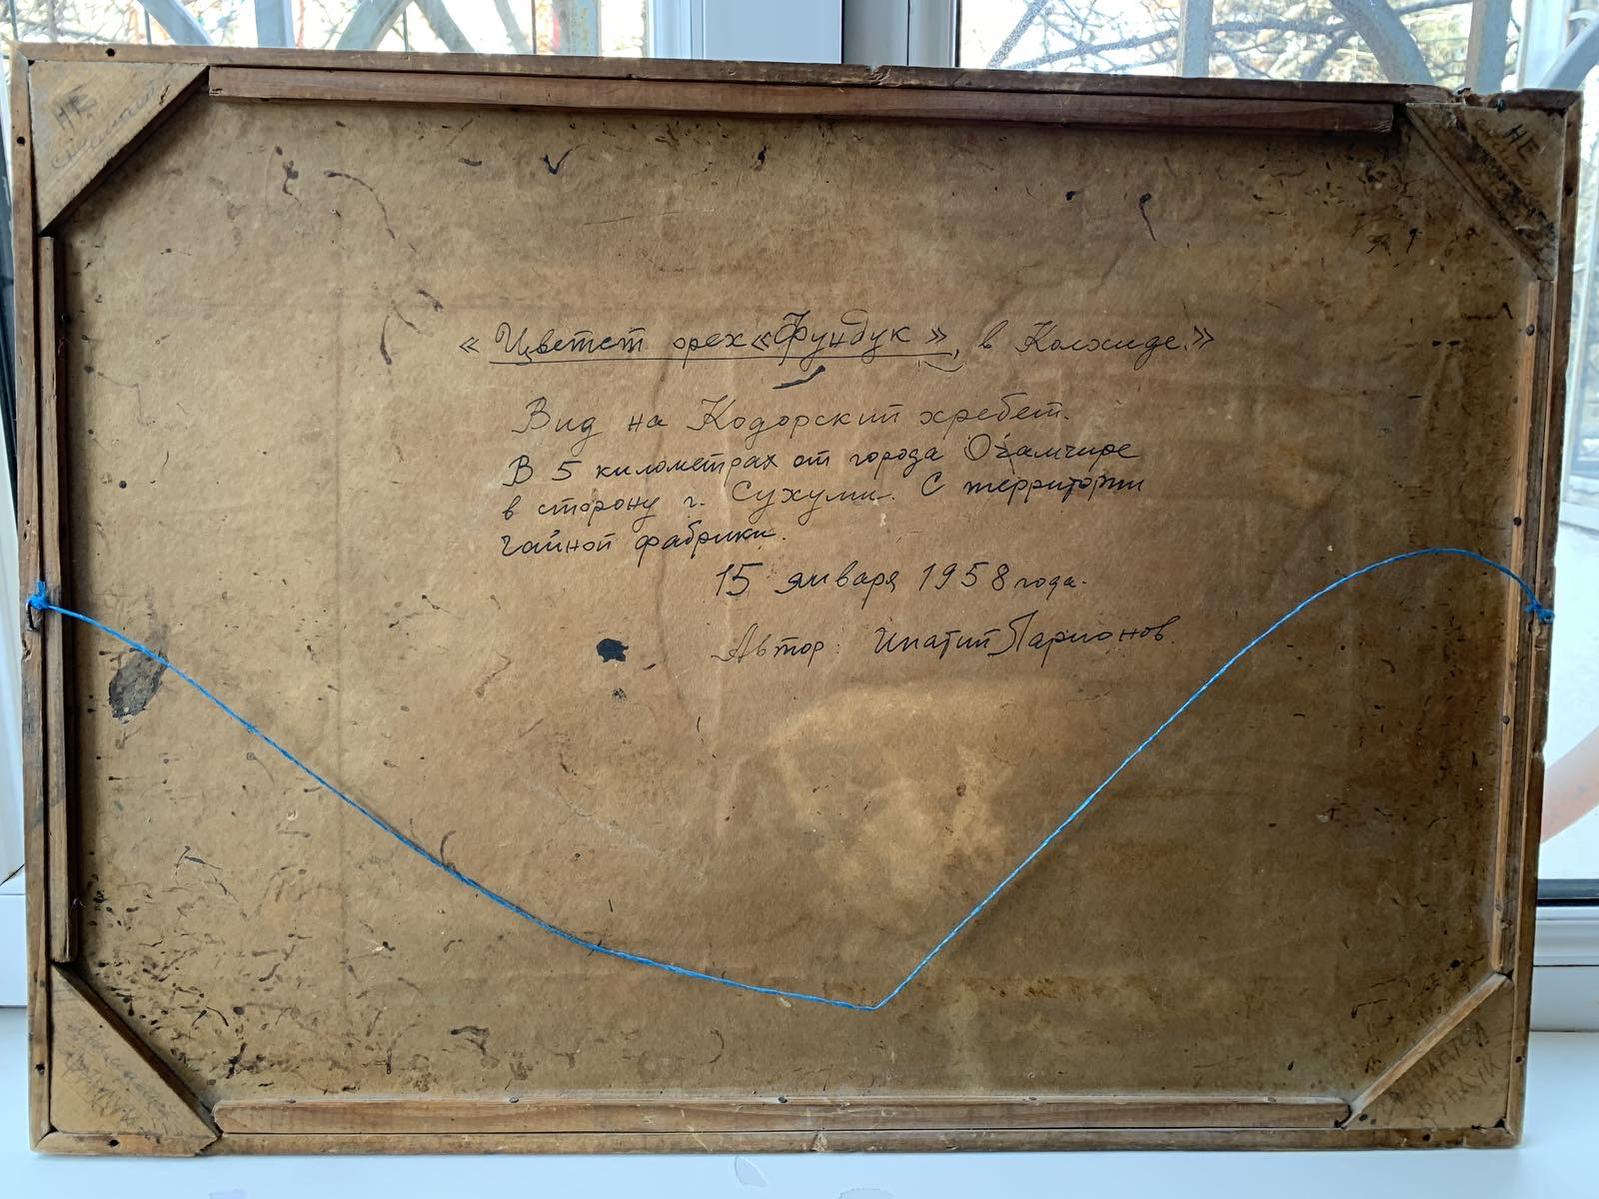 НЕ
НЕ
« Цветет орех «Фундук », в Колхиде.»
Вид на Кодорский хребет.
В 5 километрах от города Очамчире
в сторону г. Сухуми. С территории
чайной фабрики.
15 января 1958 года.
Автор: Ипатий Ларионов.
ФУНДУК